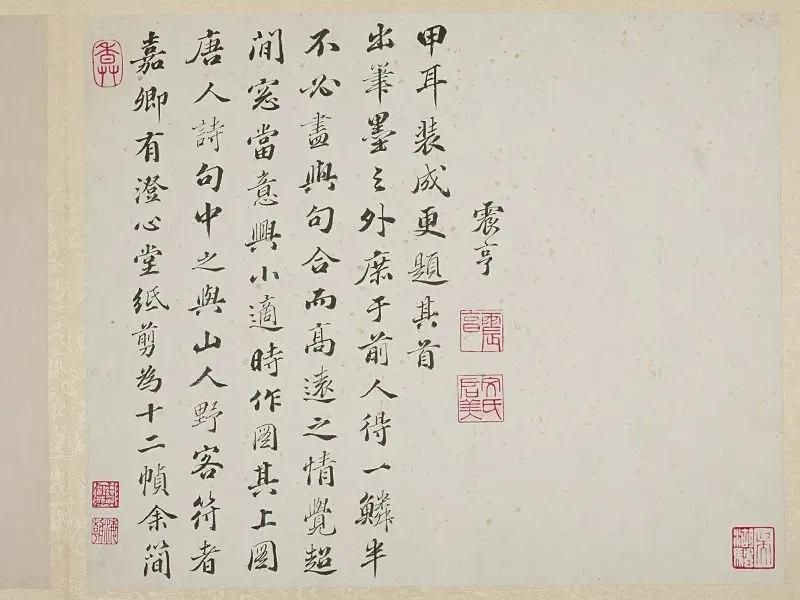 嘉卿有澄心堂紙剪為十二幀余簡
唐人詩句中之與山人野客符者
閒窓當意興小適時作圖其上圖
不必盡與句合而高遠之情覺超
出筆墨之外庶于前人得一鱗半
甲耳裝成更題其首
震亨
震亨
文氏启美